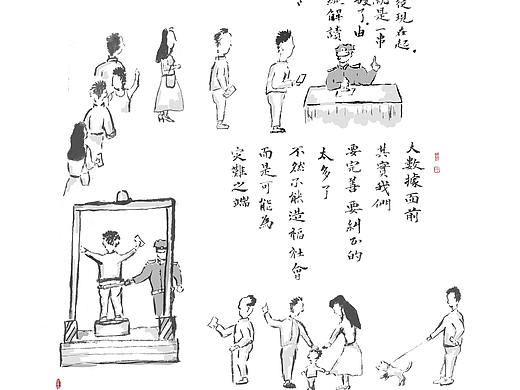 從現在起，
就是一串
了，由
解讀
大數據面前
其實我們
要完善要糾正的
太多了
不然不能造福社會
而是可能為
災難之端